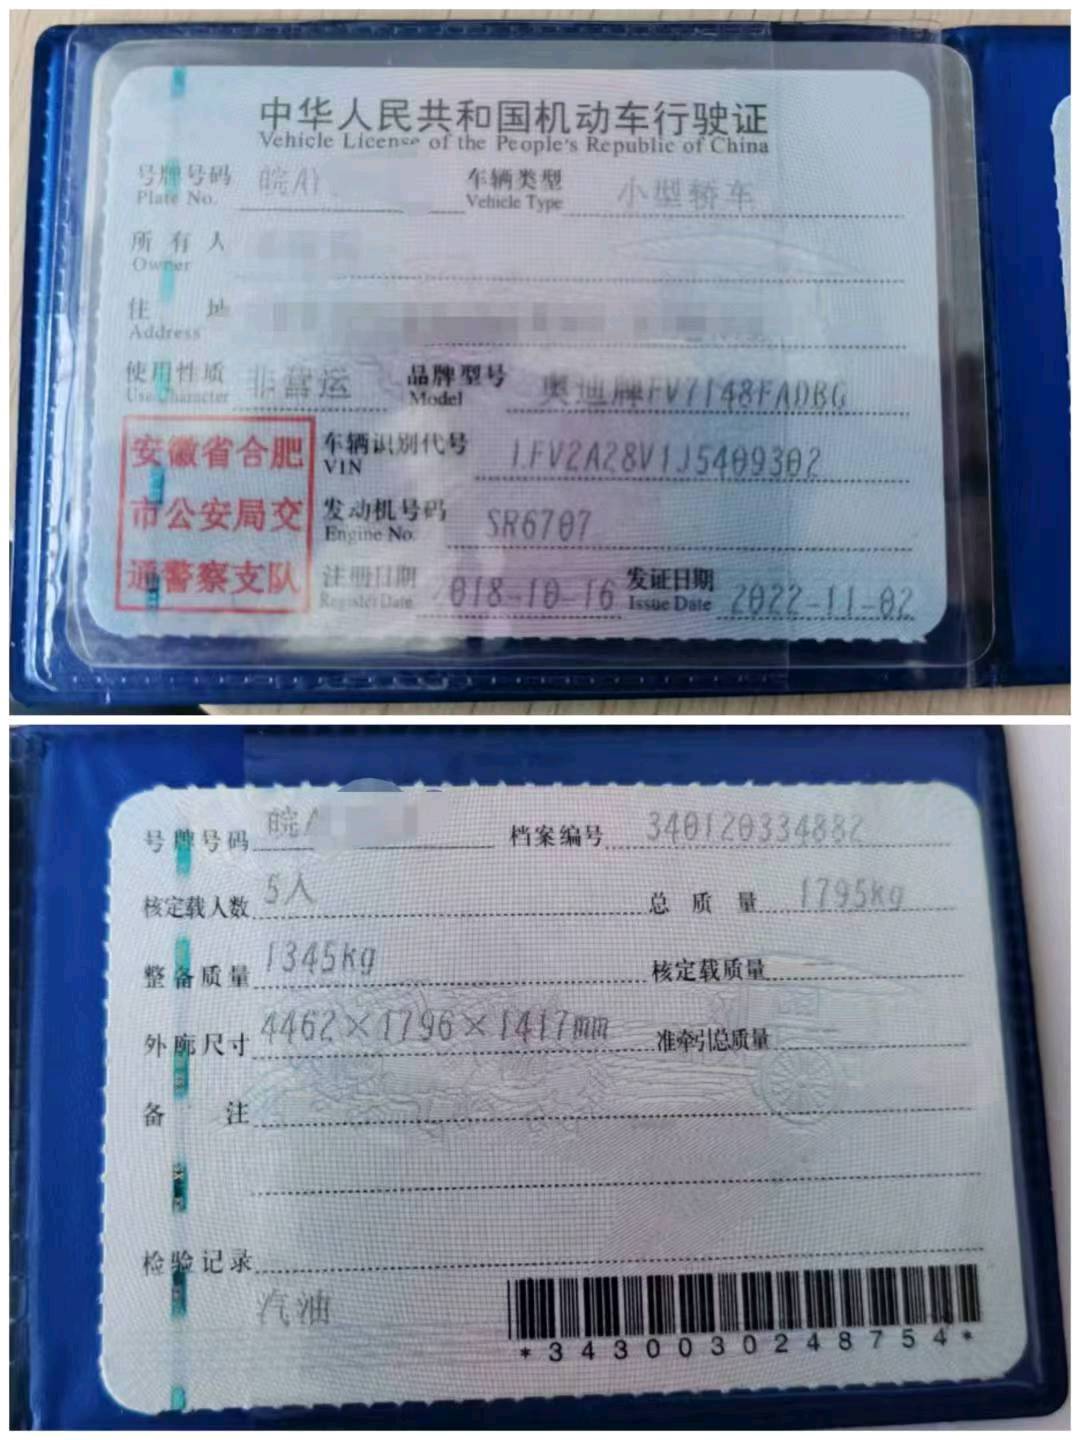 中华人民共和国机动车行驶证
Vehicle License of the People's Republic of China
号牌号码 皖A 车辆类型 小型轿车
Plate No. Vehicle Type
所有人
Owner
住址
Address
使用性质 非营运 品牌型号 奥迪牌FV7148FADBG
Use Character Model
安徽省合肥
市公安局交
通警察支队
车辆识别代号 LFV2A28V1J5409302
VIN
发动机号码 SR6707
Engine No.
注册日期 2018-10-16 发证日期 2022-11-02
Register Date Issue Date
号牌号码 皖 档案编号 340120334882
核定载人数 5人 总质量 1795kg
整备质量 1345kg 核定载质量
外廓尺寸 4462×1796×1417mm 准牵引总质量
备注
检验记录
汽油
*3430030248754*